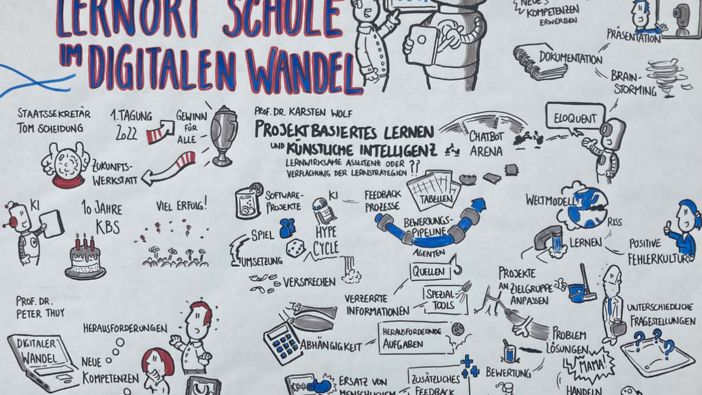 LERNORT SCHULE
IM DIGITALEN WANDEL
NEUES
KOMPETENZEN
ERWERBEN
PRÄSENTATION
DOKUMENTATION
BRAIN-
STORMING
STAATSSEKRETÄR
TOM SCHEIDUNG
1. TAGUNG
2022
GEWINN
FÜR
ALLE
ZUKUNFTS-
WERKSTATT
KI
10 JAHRE
KBS
VIEL ERFOLG!
PROF. DR. KARSTEN WOLF
PROJEKTBASIERTES LERNEN
UND KÜNSTLICHE INTELLIGENZ
LERNWIRKSAME ASSISTENZ ODER
VERFLACHUNG DER LERNSTRATEGIEN ??
CHATBOT
ARENA
ELOQUENT
SOFTWARE-
PROJEKTE
KI
SPIEL
UMSETZUNG
HYPE
CYCLE
VERSPRECHEN
FEEDBACK
PROZESSE
TABELLEN
BEWERTUNGS-
PIPELINE
AGENTEN
WELTMODELL
RISS
LERNEN
POSITIVE
FEHLERKULTUR
QUELLEN
VERZERRTE
INFORMATIONEN
SPEZIAL-
TOOLS
PROJEKTE
AN ZIELGRUPPE
ANPASSEN
UNTERSCHIEDLICHE
FRAGESTELLUNGEN
???
PROF. DR.
PETER THUY
HERAUSFORDERUNGEN
DIGITALER
WANDEL
NEUE
KOMPETENZEN
ABHÄNGIGKEIT
HERAUSFORDERNDE
AUFGABEN
PROBLEM
LÖSUNGEN
BEWERTUNG
MAMA!
HANDELN
ERSATZ VON
MENSCHLICHEM
ZUSÄTZLICHES
FEEDBACK